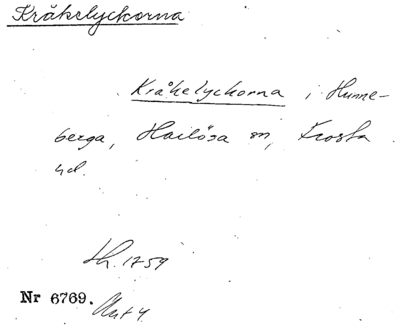 Kråkelyckorna
Kråkelyckorna i Hunne-
berga, Harlösa sn, Frosta
hd.
Lh. 1759
Nr 6769.